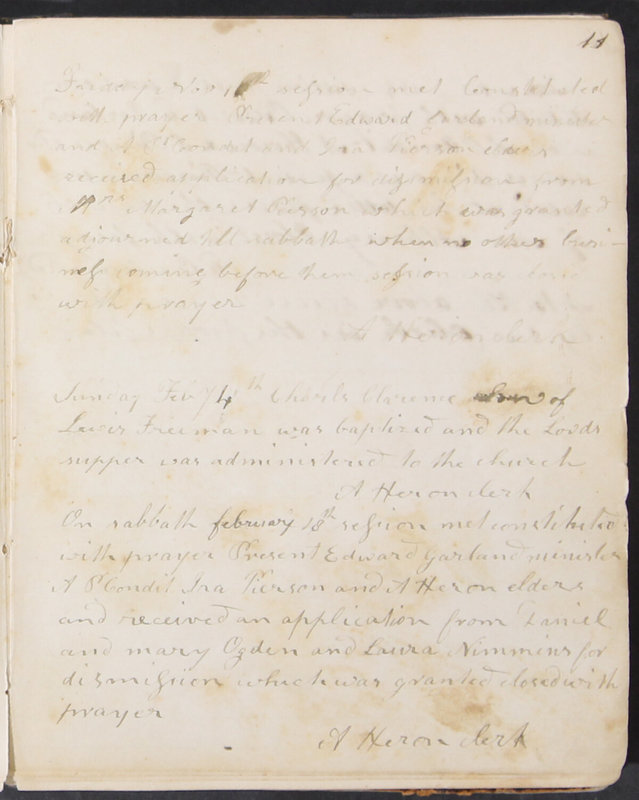 11
session met Constituted
with prayer Present Edward Garland minister
and A P Condit and Ira Pierson elders
received application for dismission from
Mrs Margaret Pierson which was granted
adjourned till sabbath when no other busi-
ness coming before them session was
with prayer
A Heron clerk
Sunday 4th Charls Clarence Son of
Lewis Freeman was baptized and the Lords
supper was administered to the church
A Heron clerk
On sabbath february 18th session met constituted
with prayer Present Edward Garland minister
A P Condit Ira Pierson and A Heron elders
and received an application from Daniel
and mary Ogden and Laura Nimmins for
dismission which was granted closed with
prayer
A Heron clerk